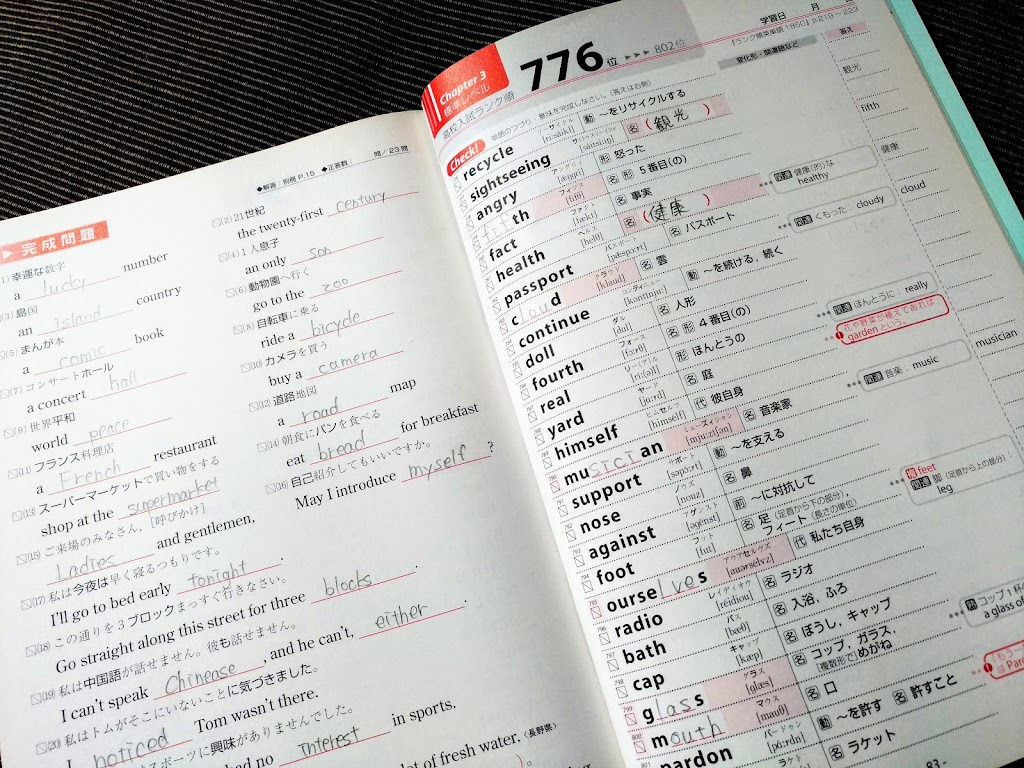 ◆解答：別冊 P.15 ◆正答数： 問／23問
完成問題
(1) 幸運な数字
a lucky number
(2) 21世紀
the twenty-first century
(3) 島国
an island country
(4) 1人息子
an only son
(5) まんが本
a comic book
(6) 動物園へ行く
go to the zoo
(7) コンサートホール
a concert hall
(8) 自転車に乗る
ride a bicycle
(9) 世界平和
world peace
(10) カメラを買う
buy a camera
(11) フランス料理店
a French restaurant
(12) 道路地図
a road map
(13) スーパーマーケットで買い物をする
shop at the supermarket
(14) 朝食にパンを食べる
eat bread for breakfast
(15) ご来場のみなさん, [呼びかけ]
Ladies and gentlemen,
(16) 自己紹介してもいいですか。
May I introduce myself ?
(17) 私は今夜は早く寝るつもりです。
I'll go to bed early tonight .
(18) この通りを3ブロックまっすぐ行きなさい。
Go straight along this street for three blocks .
(19) 私は中国語が話せません。彼も話せません。
I can't speak Chinease , and he can't, either .
(20) 私はトムがそこにいないことに気づきました。
I noticed Tom wasn't there.
スポーツに興味がありませんでした。
had no interest in sports.
of fresh water. 〈長野県〉
Chapter 3
標準レベル
高校入試ランク順
776位 ▶▶▶ 802位
学習日 月
『ランク順英単語1850』p.219～223
単語のつづり・意味を完成しなさい。(答えは右側)
変化形・関連語など
答え
Check!
recycle 動 ～をリサイクルする
sightseeing 名 (観光) 観光
angry 形 怒った
fifth 名 形 5番目(の) fifth
fact 名 事実
health 名 (健康) 関連 健康(的)な healthy 健康
passport 名 パスポート
cloud 名 雲 関連 くもった cloudy cloud
continue 動 ～を続ける, 続く
doll 名 人形
fourth 名 形 4番目(の)
real 形 ほんとうの 関連 ほんとうに：really
yard 名 庭 花や野菜が植えてあれば garden という。
himself 代 彼自身
musician 名 音楽家 関連 音楽：music musician
support 動 ～を支える
nose 名 鼻
against 前 ～に対抗して
foot 名 足(足首から下の部分), フィート(長さの単位) 複 feet 関連 脚(足首から上の部分)：leg
ourselves 代 私たち自身
radio 名 ラジオ
bath 名 入浴, ふろ
cap 名 ぼうし, キャップ
glass 名 コップ, ガラス, (複数形で)めがね コップ1杯 a glass of
mouth 名 口
pardon 動 ～を許す 名 許すこと
名 ラケット
83